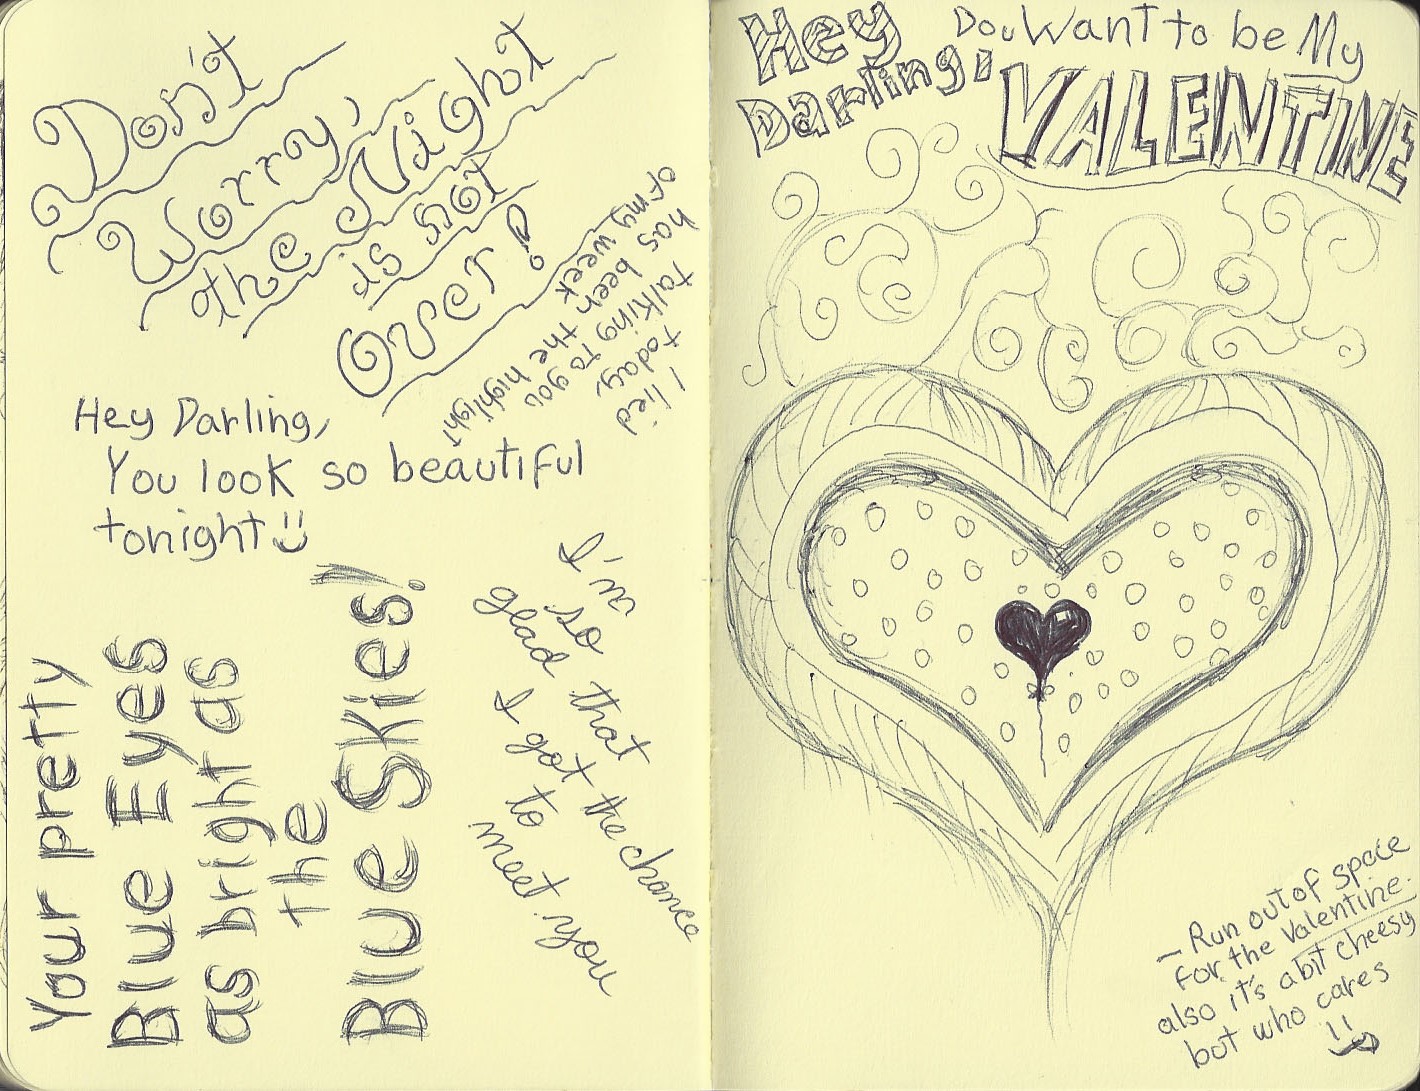 Don't
Worry,
the Night
is not
over!
I lied
today,
talking to you
has been the highlight
of my week
Hey Darling,
You look so beautiful
tonight
Your pretty
Blue Eyes
as bright as
the
Blue Skies!
I'm
so
glad that
I got the chance
to
meet you
Hey
Darling,
Do u want to be My
VALENTINE
- Run out of space
for the Valentine.
also it's a bit cheesy
but who cares